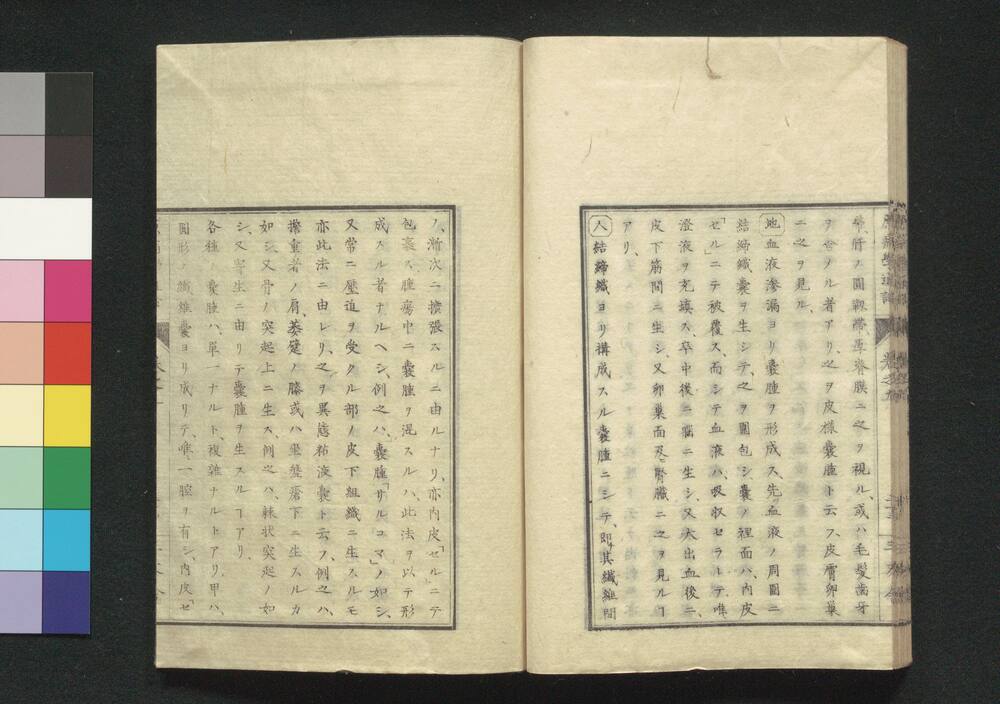 髒、肝ノ圓靱帶、莖脊膜ニ之ヲ視ル、或ハ毛髮齒牙
ヲ含ノル者アリ、之ヲ皮樣囊腫ト云フ、皮膚卵巢
ニ之ヲ見ル、
地 血液滲漏ヨリ囊腫ヲ形成ス先血液ノ周圍ニ
結締織囊ヲ生シ、テ之ヲ圍包シ囊ノ裡面ハ、內皮
「セル」ニテ被覆ス、而シテ血液ハ吸収セラレテ唯
澄液ヲ充填ス、卒中後ニ腦ニ生シ、又大出血後ニ、
皮下筋間ニ生シ、又卵巢面及ヒ腎臟ニ之ヲ見ルヿ
アリ、
人 結締織ヨリ構成スル囊腫ニシテ、即其纖維間
ノ、漸次ニ擴張スルニ由ルナリ、亦內皮「セル」ニテ
包裹ス、腫瘍中ニ囊腫ヲ混スルハ、此法ヲ以テ形
成スル者ナルヘシ、例之ハ、囊腫「サルコマ」ノ如シ、
又常ニ壓迫ヲ受クル部ノ皮下組織ニ生スルモ
亦此法ニ由レリ、之ヲ異態粘液囊ト云フ、例之ハ、
擔重者ノ肩、ノ膝或ハ下ニ生スルカ
如シ、又骨ノ突起上ニ生ス、例之ハ、棘状突起ノ如
シ、又寄生ニ由リテ囊腫ヲ生スルヿアリ、
各種 囊腫ハ、單一ナルト、複雜ナルトアリ甲ハ、
圓形 纖維囊ヨリ成リテ、唯一腔ヲ有シ、內皮「セ